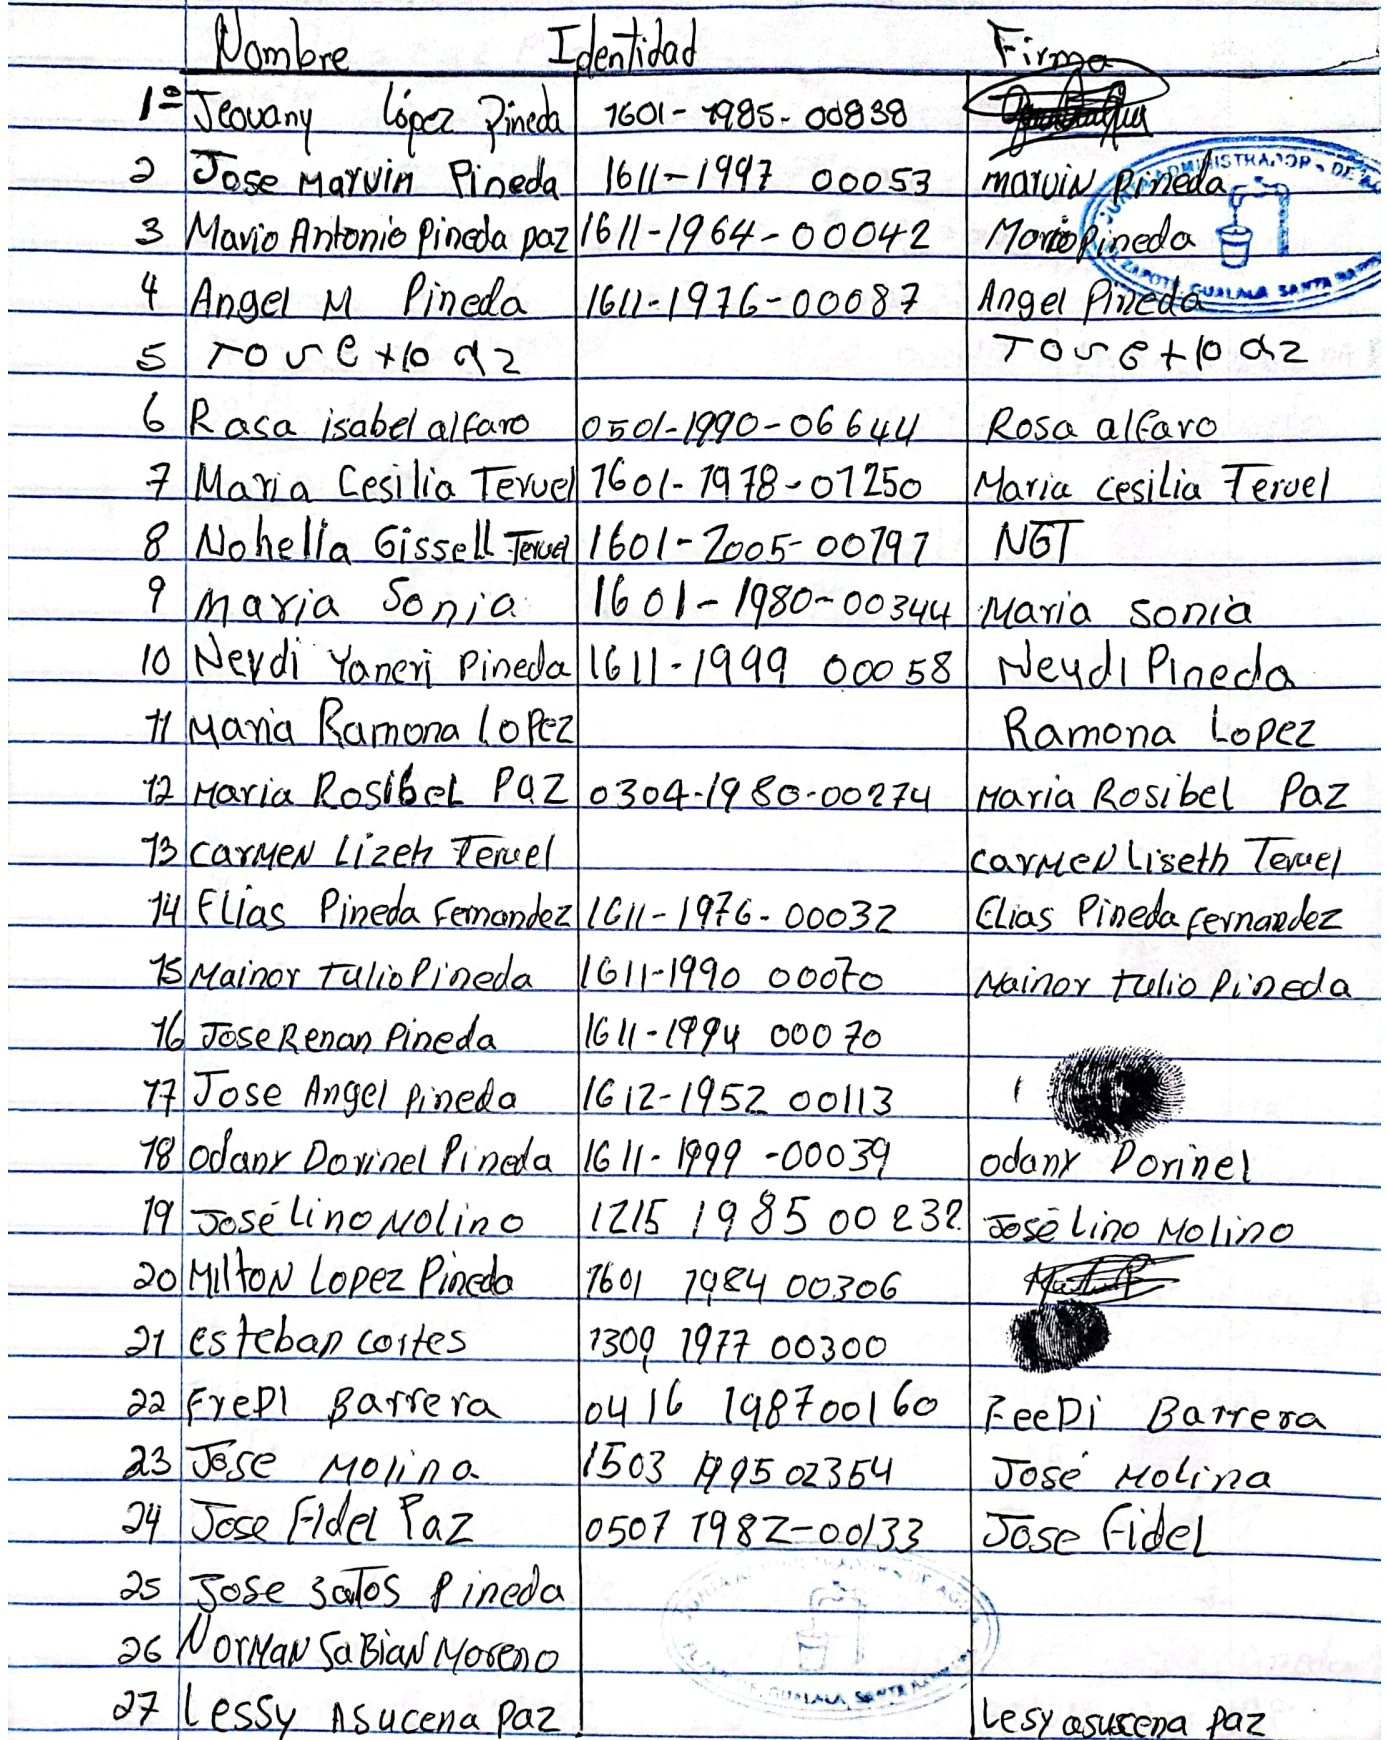 Nombre Identidad Firma
1º Jeovany López Pineda 1601-1985-00838
2 Jose Marvin Pineda 1611-1997 00053 marvin Pineda
3 Mario Antonio Pineda paz 1611-1964-00042 Mario Pineda
4 Angel M Pineda 1611-1976-00087 Angel Pineda
5
6 Rasa isabel alfaro 0501-1990-06644 Rosa alfaro
7 Maria Cesilia Teruel 1601-1978-01250 Maria cesilia Teruel
8 Nohelia Gissell Teruel 1601-2005-00797 NGT
9 Maria Sonia 1601-1980-00344 Maria sonia
10 Neydi Yaneri Pineda 1611-1999 00058 Neydi Pineda
11 Maria Ramona Lopez Ramona Lopez
12 Maria Rosibel Paz 0304-1980-00274 Maria Rosibel Paz
13 Carmen Lizeh Teruel Carmen Liseth Teruel
14 Elias Pineda Fernandez 1611-1976-00032 Elias Pineda Fernandez
15 Mainor Tulio Pineda 1611-1990 00070 Mainor Tulio Pineda
16 Jose Renan Pineda 1611-1994 00070
17 Jose Angel Pineda 1612-1952 00113
18 Odany Dorinel Pineda 1611-1999-00039 Odany Dorinel
19 José Lino Molino 1215 1985 00232 José Lino Molino
20 Milton Lopez Pineda 1601 1984 00306
21 Esteban cortes 1309 1977 00300
22 FreDI Barrera 0416 1987 00160 FeeDi Barrera
23 Jose Molina 1503 1995 02354 José Molina
24 Jose Fidel Paz 0507 1982-00133 Jose Fidel
25 Jose Satos Pineda
26 Norman SaBian Moreno
27 Lessy Asucena Paz Lesy asuscena Paz
JUNTA ADMINISTRADOR - DE AGUA
EL ZAPOTE, GUALALA, SANTA BARBARA